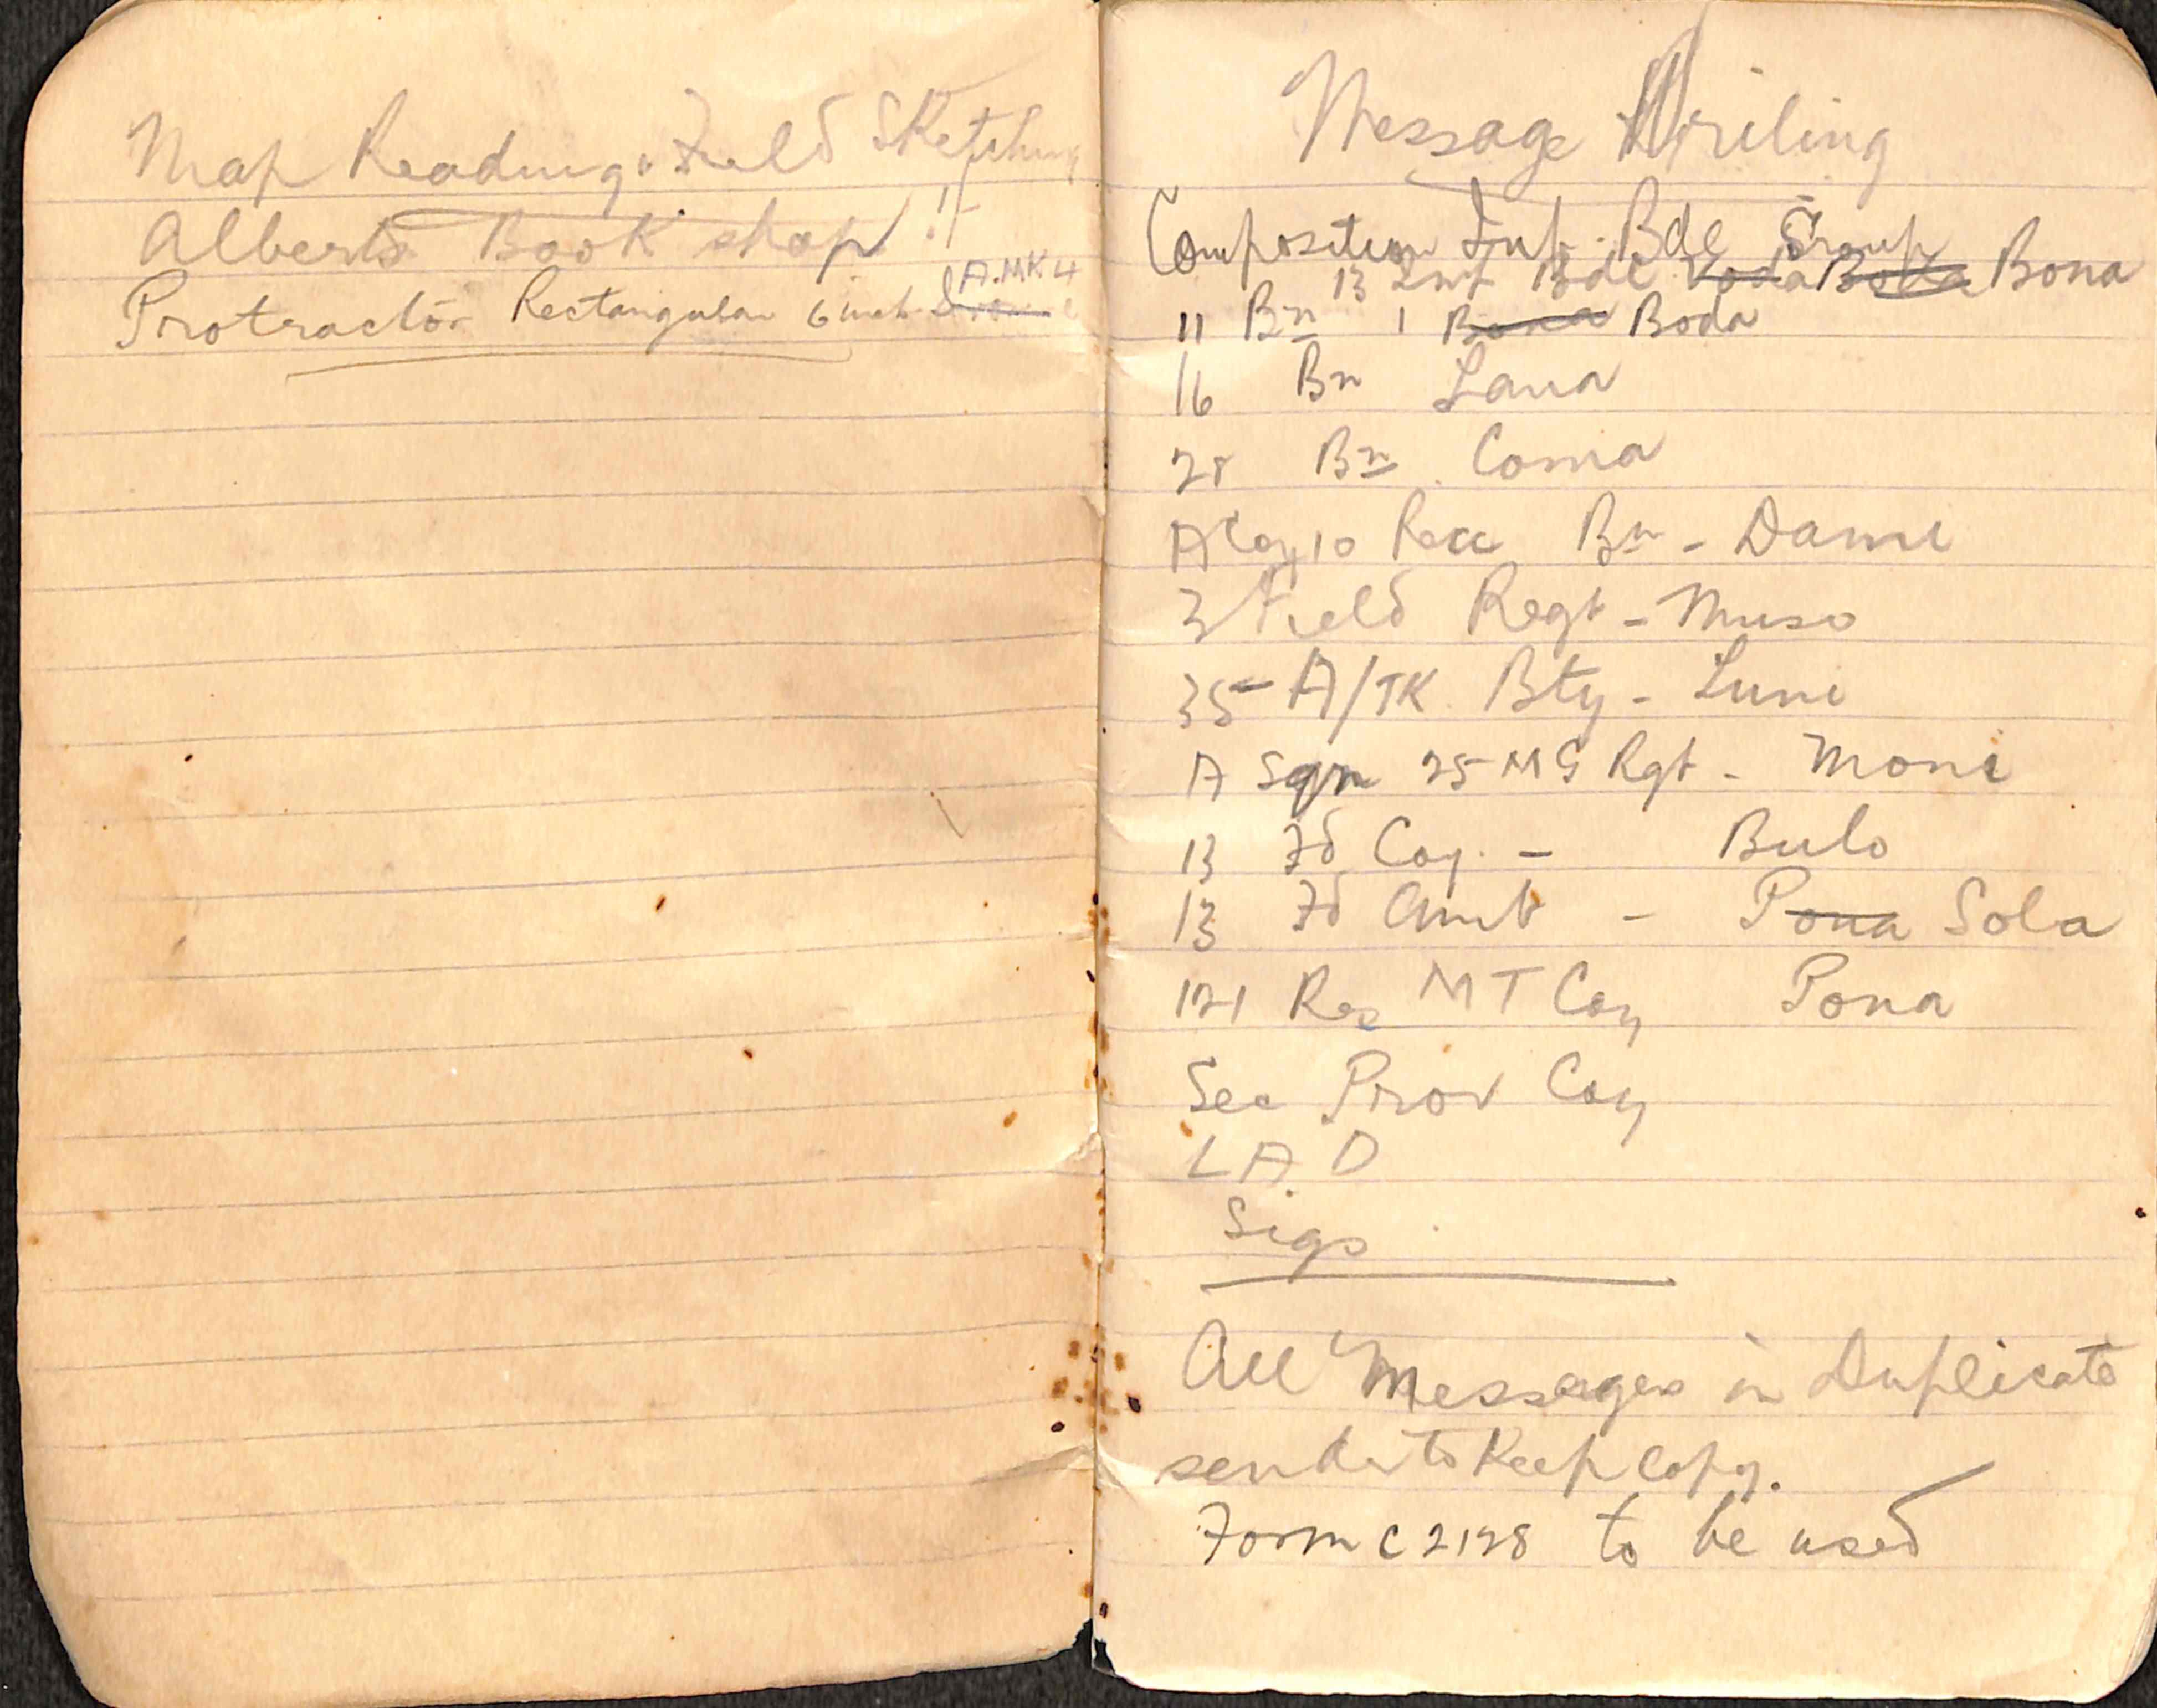 Map Reading & Field Sketching
Alberts Book shop 1/-
Protractor Rectangular 6 inch A.MK 4
Message Writing
Composition Inf. Bde Group
13 Inf Bde Voda Boda Bona
11 Bn 1 Bona Boda
16 Bn Lana
28 Bn Coma
A Coy 10 Recc Bn - Dami
3 Field Regt - Muso
35 A/TK Bty - Lumi
A Sqn 25 MG Rgt - Moni
13 Fd Coy - Bulo
13 Fd Amb - Pona Sola
121 Res MT Coy Pona
Sec Prov Coy
L A D
Sigs
All Messages in Duplicate
sender to Keep Copy.
Form C 2128 to be used